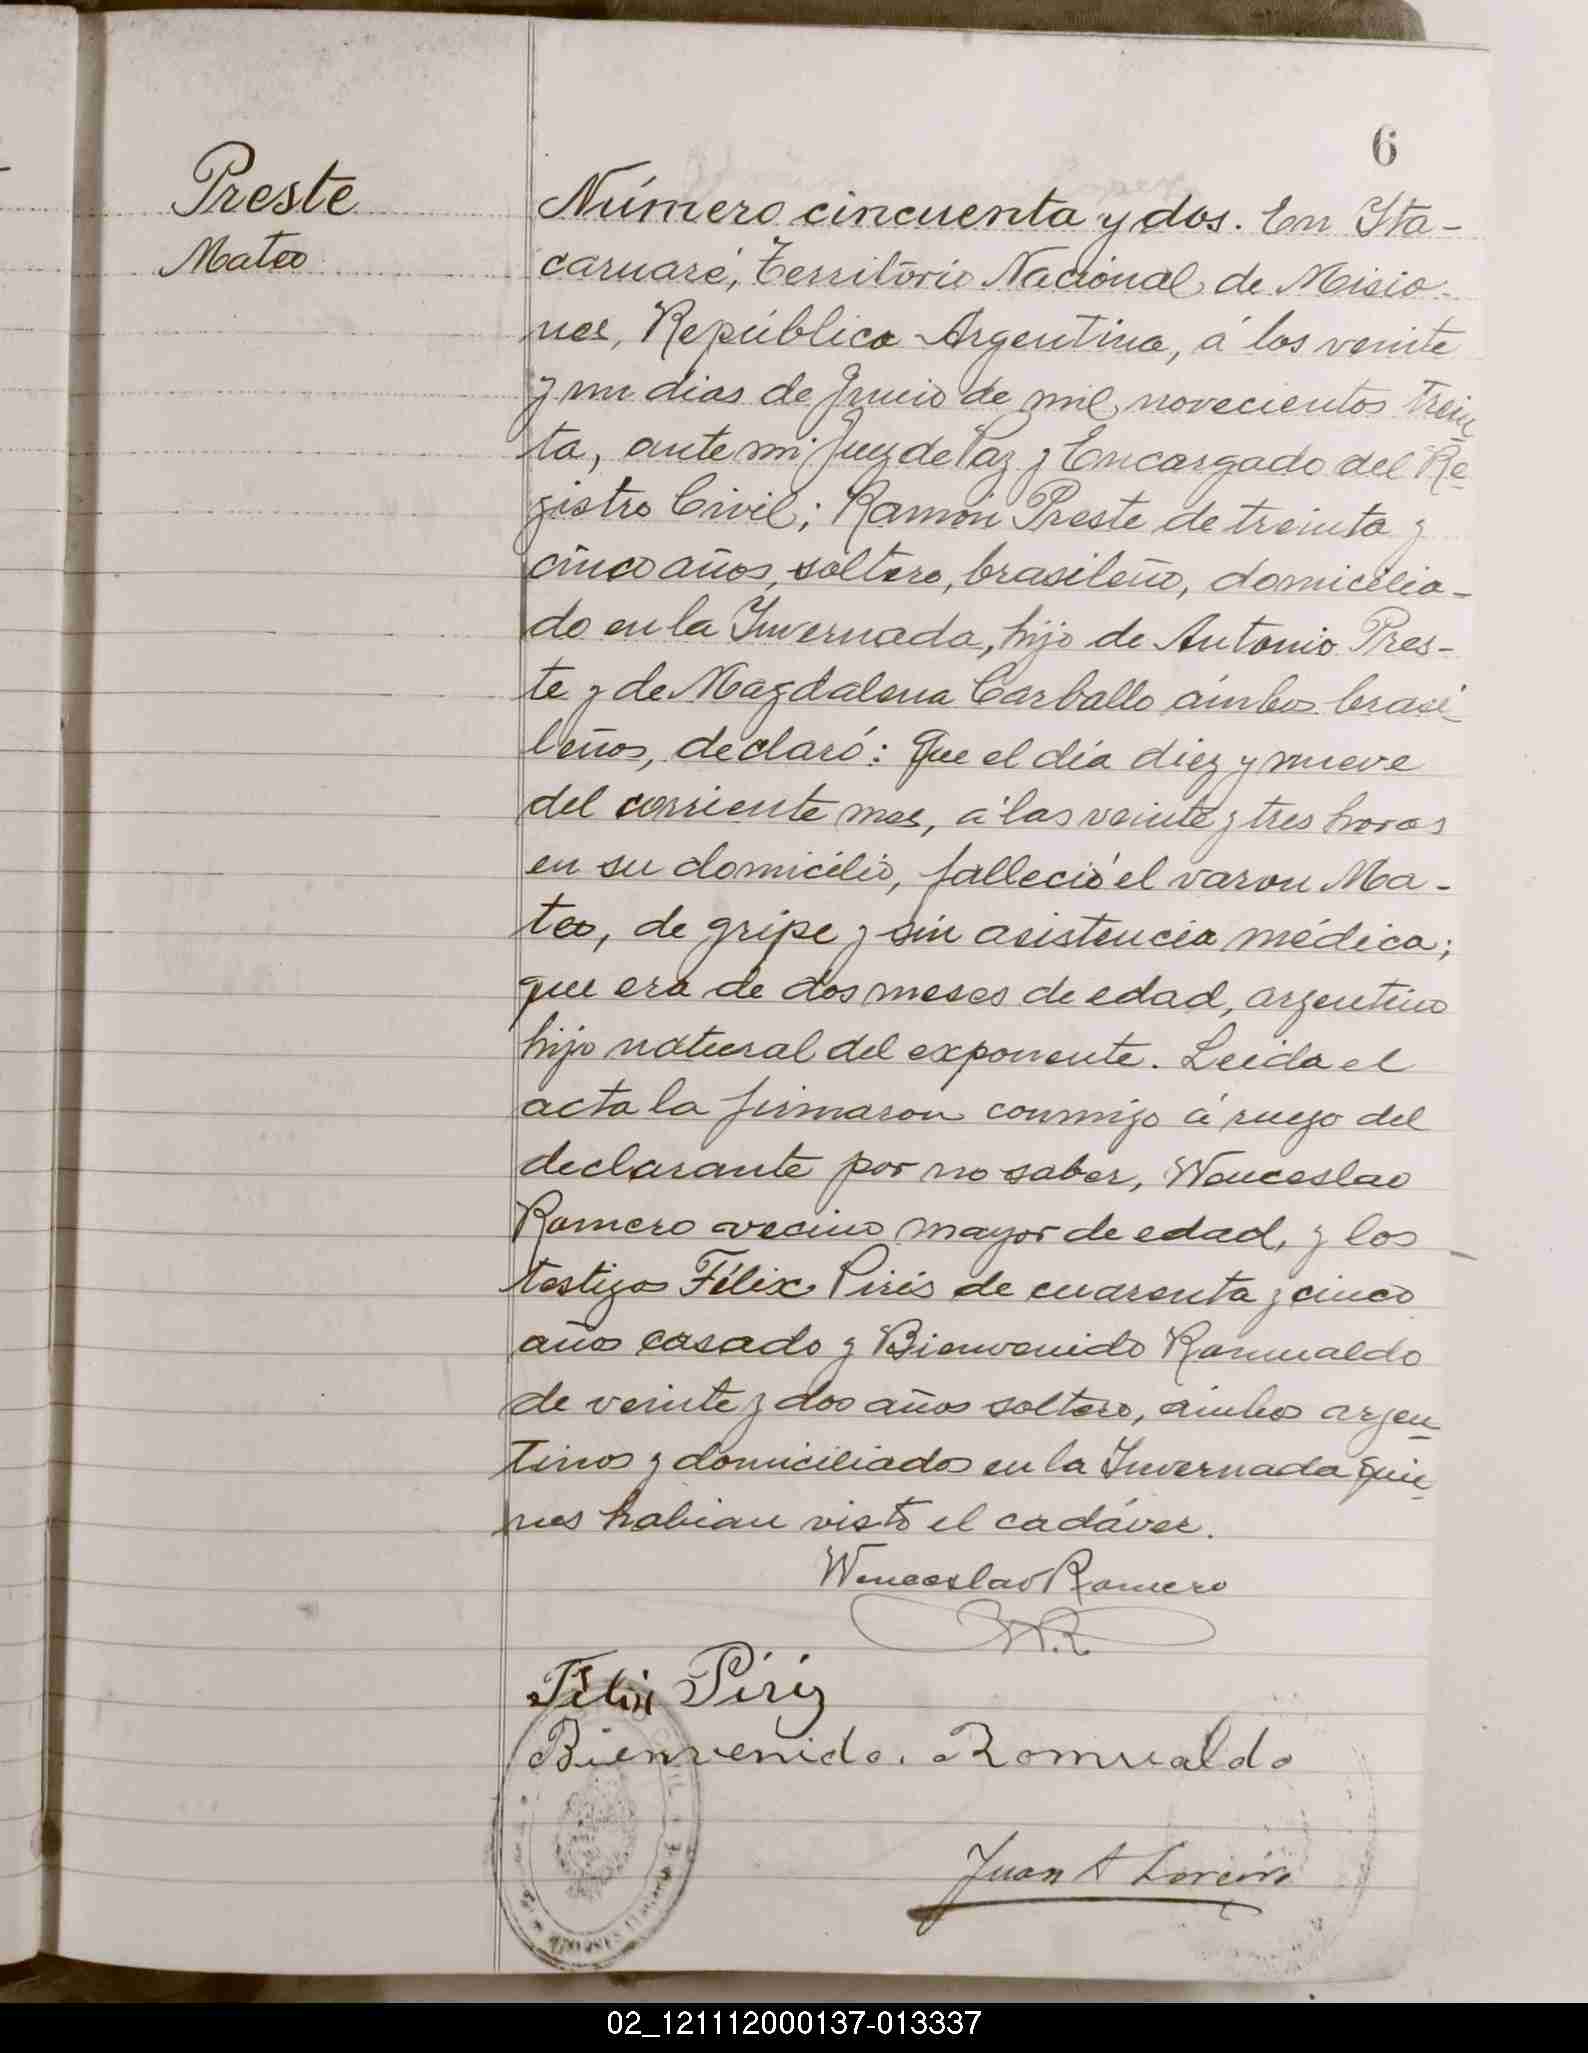 6
Preste
Mateo
Número cincuenta y dos. En Ita-
caruaré, Territorio Nacional de Misio-
nes, República Argentina, á los veinte
y un dias de Junio de mil novecientos trein
ta, ante mi Juez de Paz y Encargado del Re-
gistro Civil; Ramón Preste de treinta y
cinco años, soltero, brasileño, domicilia-
do en la Invernada, hijo de Antonio Pres-
te y de Magdalena Carballo ámbos brasi
leños, declaró: Que el día diez y nueve
del corriente mes, á las veinte y tres horas
en su domicilio, falleció el varon Ma-
teo, de gripe y sin asistencia médica;
que era de dos meses de edad, argentino
hijo natural del exponente. Leida el
acta la firmaron conmigo á ruego del
declarante por no saber, Wenceslao
Romero vecino mayor de edad, y los
testigos Félix Pirís de cuarenta y cinco
años casado y Bienvenido Romualdo
de veinte y dos años soltero, ámbos argen
tinos y domiciliados en la Invernada quie
nes habian visto el cadáver.
Wenceslao Romero
W.R.
Félix Píriz
Bienvenido. Romualdo
Juan A
02_121112000137-013337